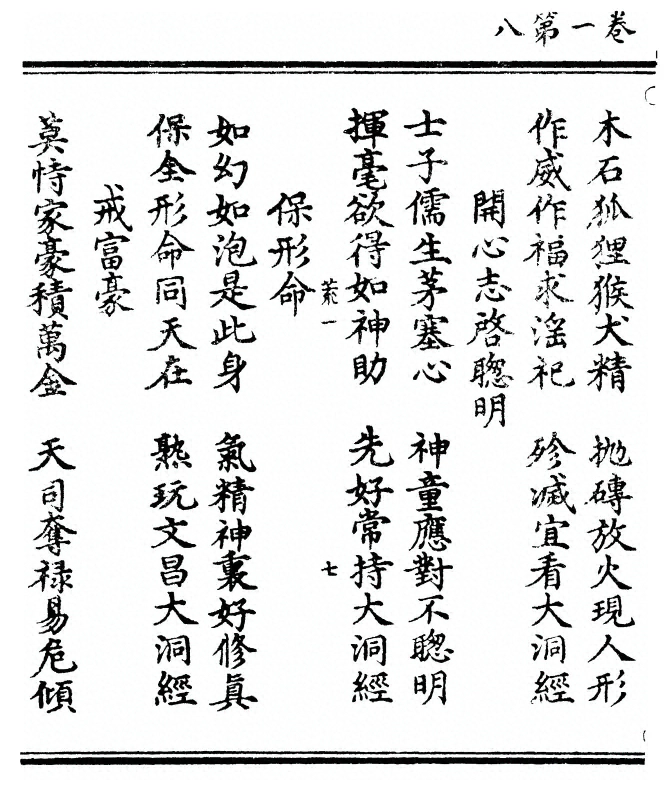 卷一第八
木石狐狸猴犬精　抛磚放火現人形
作威作福求滛祀　殄滅宜看大洞經
開心志啓聦明
士子儒生茅塞心　神童應對不聦明
揮毫欲得如神助　先好常持大洞經
菀一　七
保形命
如幻如泡是此身　氣精神裏好修眞
保全形命同天在　熟玩文昌大洞經
戒富豪
莫恃家豪積萬金　天司奪禄易危傾